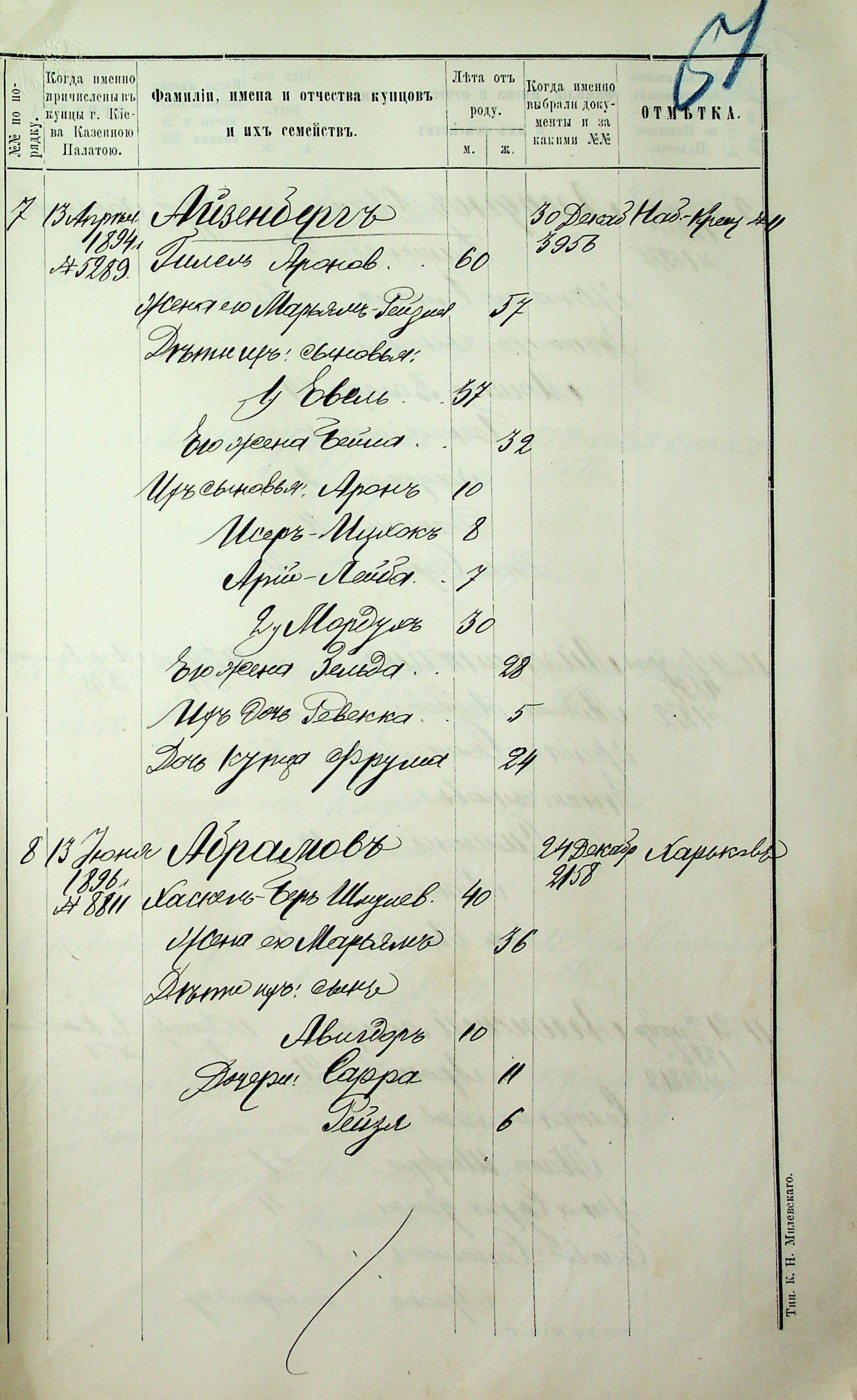 67
№№ по по-
рядку.
Когда именно
причислены въ
купцы г. Кіе-
ва Казенною
Палатою.
Фамиліи, имена и отчества купцовъ
и ихъ семействъ.
Лѣта отъ
роду.
м.
ж.
Когда именно
выбрали доку-
менты и за
какими №№
ОТМѢТКА.
7 13 Апрѣля Айзенбергъ 30 Декаб Наб.-Крещ № 11
1894 г. 3956
№ 5289. Гилель Аронов. 60
Жена его Марьямъ-Рейзля 57
Дѣти ихъ: сыновья:
1) Евель 37
Его жена Бейла 32
Ихъ сыновья: Аронъ 10
Исеръ-Ицхокъ 8
Арій-Лейба 7
2) Мордухъ 30
Его жена Зельда 28
Ихъ дочь Ревекка 5
Дочь купца Фрума 24
8 13 Іюня Абрамовъ 24 Декабр Харьковъ
1896 г. 2158
№ 8811 Хаскель-Беръ Шмулев. 40
Жена его Марьямъ 36
Дѣти ихъ: сынъ
Авигдоръ 10
Дочери: Сарра 11
Рейзя 6
Тип. К. Н. Милевскаго.